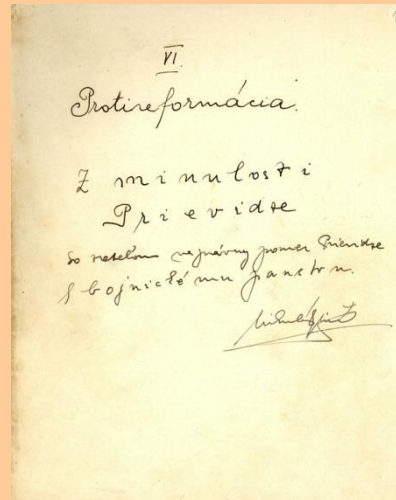 VI.
Protireformácia.
Z minulosti
Prievidze
So zreteľom na právny pomer Prievidze
k bojnickému panstvu.